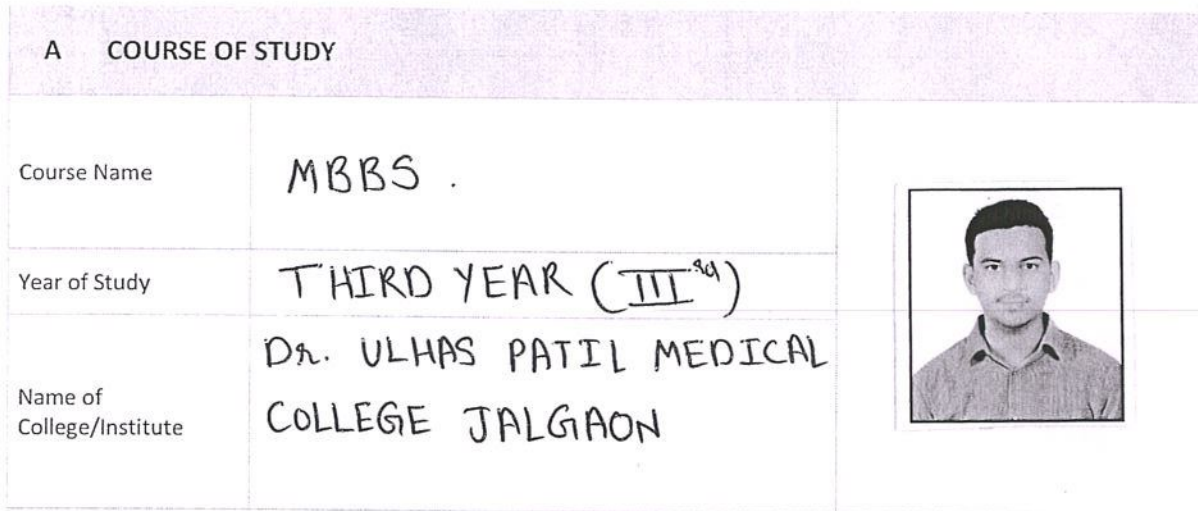 A COURSE OF STUDY
Course Name MBBS .
Year of Study THIRD YEAR (III rd)
Name of College/Institute
Dr. ULHAS PATIL MEDICAL
COLLEGE JALGAON